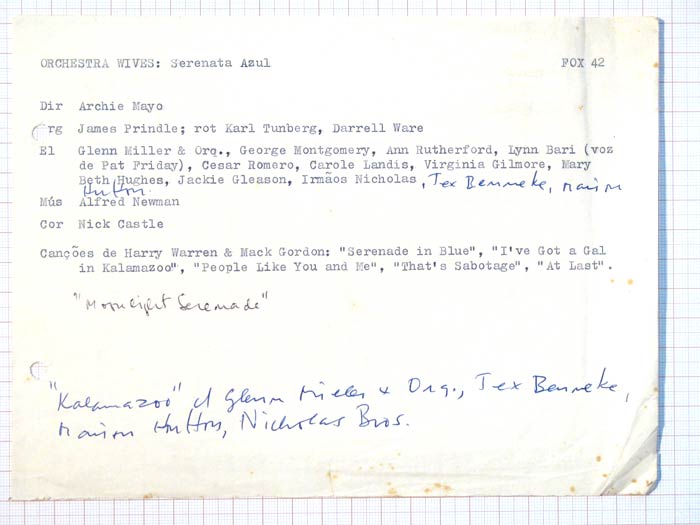 ORCHESTRA WIVES: Serenata Azul FOX 42
Dir Archie Mayo
rg James Prindle; rot Karl Tunberg, Darrell Ware
El Glenn Miller & Orq., George Montgomery, Ann Rutherford, Lynn Bari (voz
de Pat Friday), Cesar Romero, Carole Landis, Virginia Gilmore, Mary
Beth Hughes, Jackie Gleason, Irmãos Nicholas, Tex Benneke, Marion
Hutton.
Mús Alfred Newman
Cor Nick Castle
Canções de Harry Warren & Mack Gordon: "Serenade in Blue", "I've Got a Gal
in Kalamazoo", "People Like You and Me", "That's Sabotage", "At Last".
"Moonlight Serenade"
"Kalamazoo" c/ Glenn Miller & Orq., Tex Benneke,
Marion Hutton, Nicholas Bros.